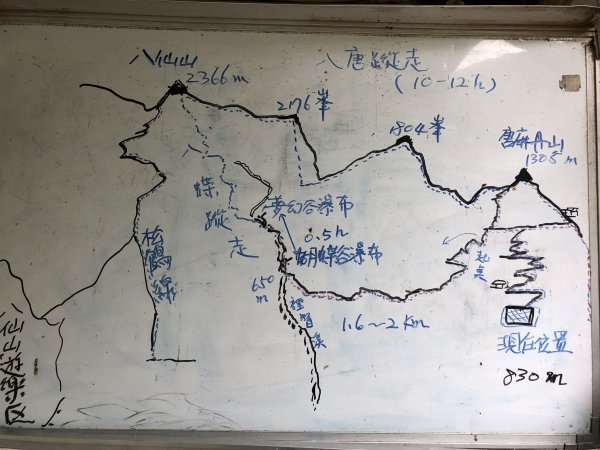 八仙山
2366m
八唐蹤走
(10-12h)
2176峯
1804峯
唐麻丹山
1305m
八
蝶
蹤
走
夢幻谷瀑布
0.5h
蝴蝶谷瀑布
650
m
起點
松鶴線
1.6~2Km
現在位置
830m
八仙山遊樂区